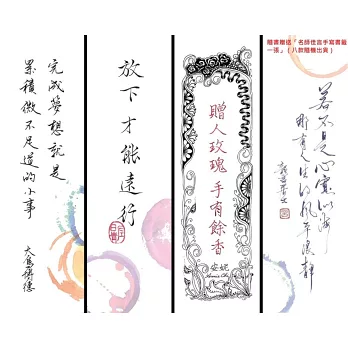 完成夢想就是
累積微不足道的小事
放下才能遠行
贈人玫瑰 手有餘香
安妮
隨書贈送「名師佳言手寫書籤
一張」(八款隨機出貨)
若不是心寬似海
哪有人生的風平浪靜